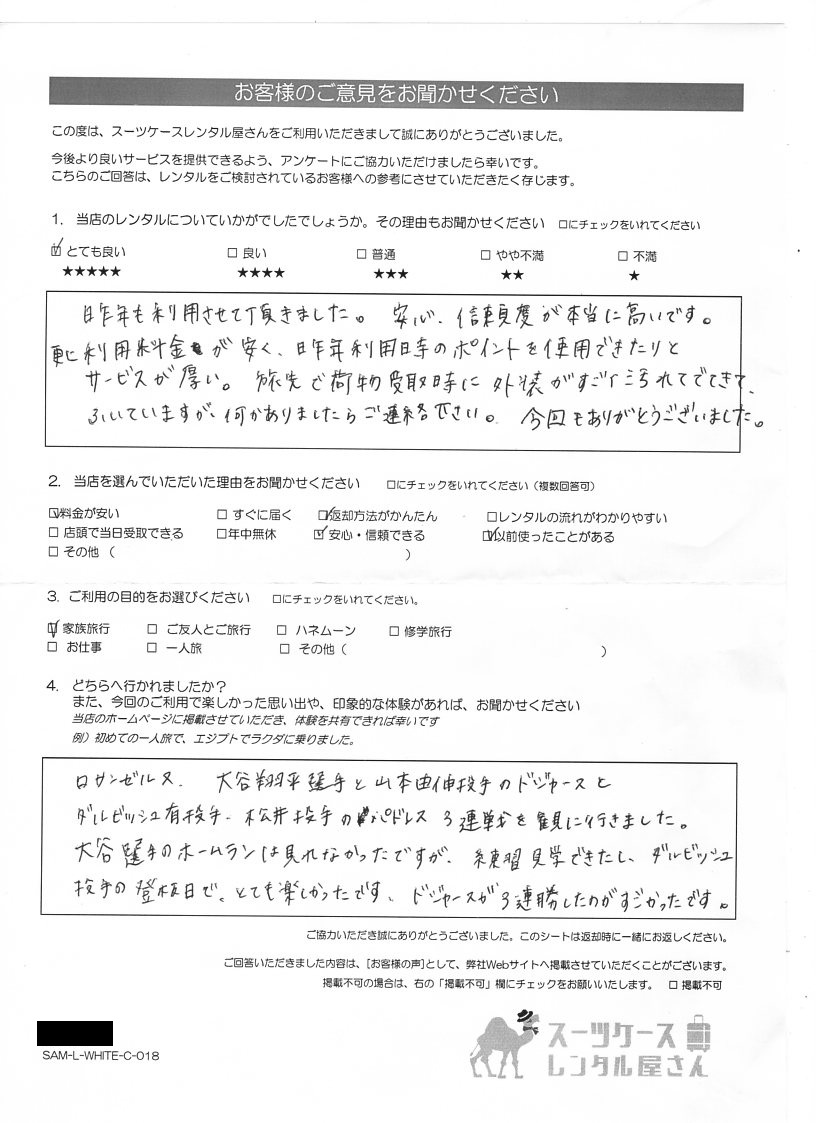 お客様のご意見をお聞かせください
この度は、スーツケースレンタル屋さんをご利用いただきまして誠にありがとうございました。
今後より良いサービスを提供できるよう、アンケートにご協力いただけましたら幸いです。
こちらのご回答は、レンタルをご検討されているお客様への参考にさせていただきたく存じます。
1. 当店のレンタルについていかがでしたでしょうか。その理由もお聞かせください □にチェックをいれてください
☑ とても良い □ 良い □ 普通 □ やや不満 □ 不満
★★★★★ ★★★★ ★★★ ★★ ★
昨年も利用させて頂きました。安心、信頼度が本当に高いです。
更に利用料金が安く、昨年利用時のポイントを使用できたりと
サービスが厚い。旅先で荷物受取時に外装がすごく汚れてでてきて、
ふいていますが、何かありましたらご連絡下さい。今回もありがとうございました。
2. 当店を選んでいただいた理由をお聞かせください □にチェックをいれてください(複数回答可)
☑料金が安い □ すぐに届く ☑返却方法がかんたん □レンタルの流れがわかりやすい
□ 店頭で当日受取できる □年中無休 ☑安心・信頼できる ☑以前使ったことがある
□ その他 ( )
3. ご利用の目的をお選びください □にチェックをいれてください。
☑ 家族旅行 □ ご友人とご旅行 □ ハネムーン □ 修学旅行
□ お仕事 □ 一人旅 □ その他 ( )
4. どちらへ行かれましたか?
また、今回のご利用で楽しかった思い出や、印象的な体験があれば、お聞かせください
当店のホームページに掲載させていただき、体験を共有できれば幸いです
例)初めての一人旅で、エジプトでラクダに乗りました。
ロサンゼルス、大谷翔平選手と山本由伸投手のドジャースと
ダルビッシュ有投手、松井投手のパドレス3連戦を観に行きました。
大谷選手のホームランは見れなかったですが、練習見学できたし、ダルビッシュ
投手の登板日で、とても楽しかったです、ドジャースが3連勝したのがすごかったです。
ご協力いただき誠にありがとうございました。このシートは返却時に一緒にお返しください。
ご回答いただきました内容は、[お客様の声]として、弊社Webサイトへ掲載させていただくことがございます。
掲載不可の場合は、右の「掲載不可」欄にチェックをお願いいたします。 □ 掲載不可
SAM-L-WHITE-C-018
スーツケース
レンタル屋さん